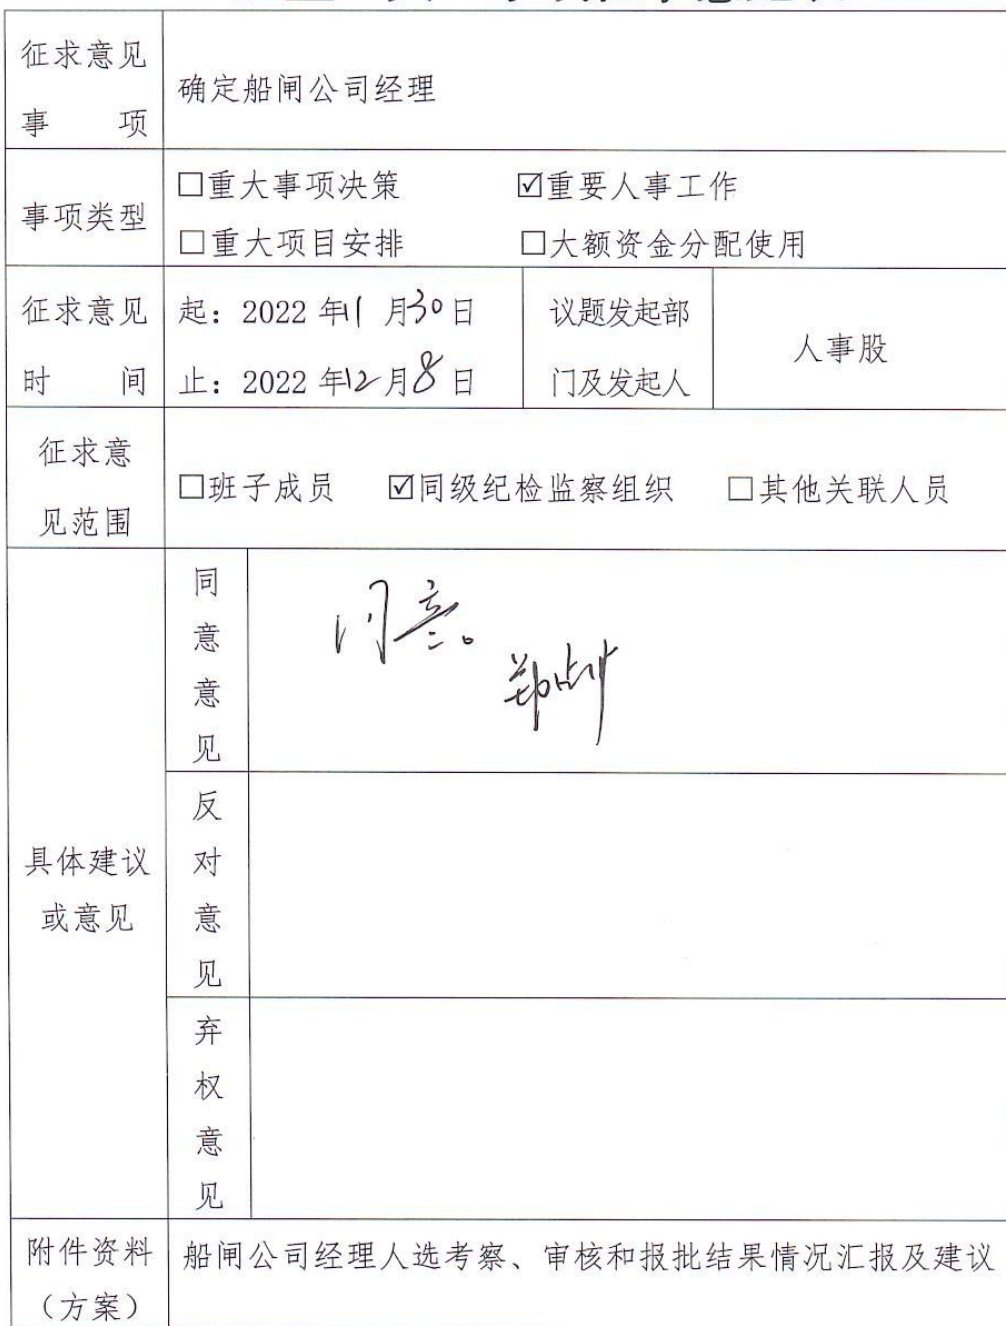 征求意见
事 项
确定船闸公司经理
事项类型
□重大事项决策 ☑重要人事工作
□重大项目安排 □大额资金分配使用
征求意见
时 间
起：2022年11月30日
止：2022年12月8日
议题发起部
门及发起人
人事股
征求意
见范围
□班子成员 ☑同级纪检监察组织 □其他关联人员
具体建议
或意见
同
意
意
见
同意。
反
对
意
见
弃
权
意
见
附件资料
（方案）
船闸公司经理人选考察、审核和报批结果情况汇报及建议